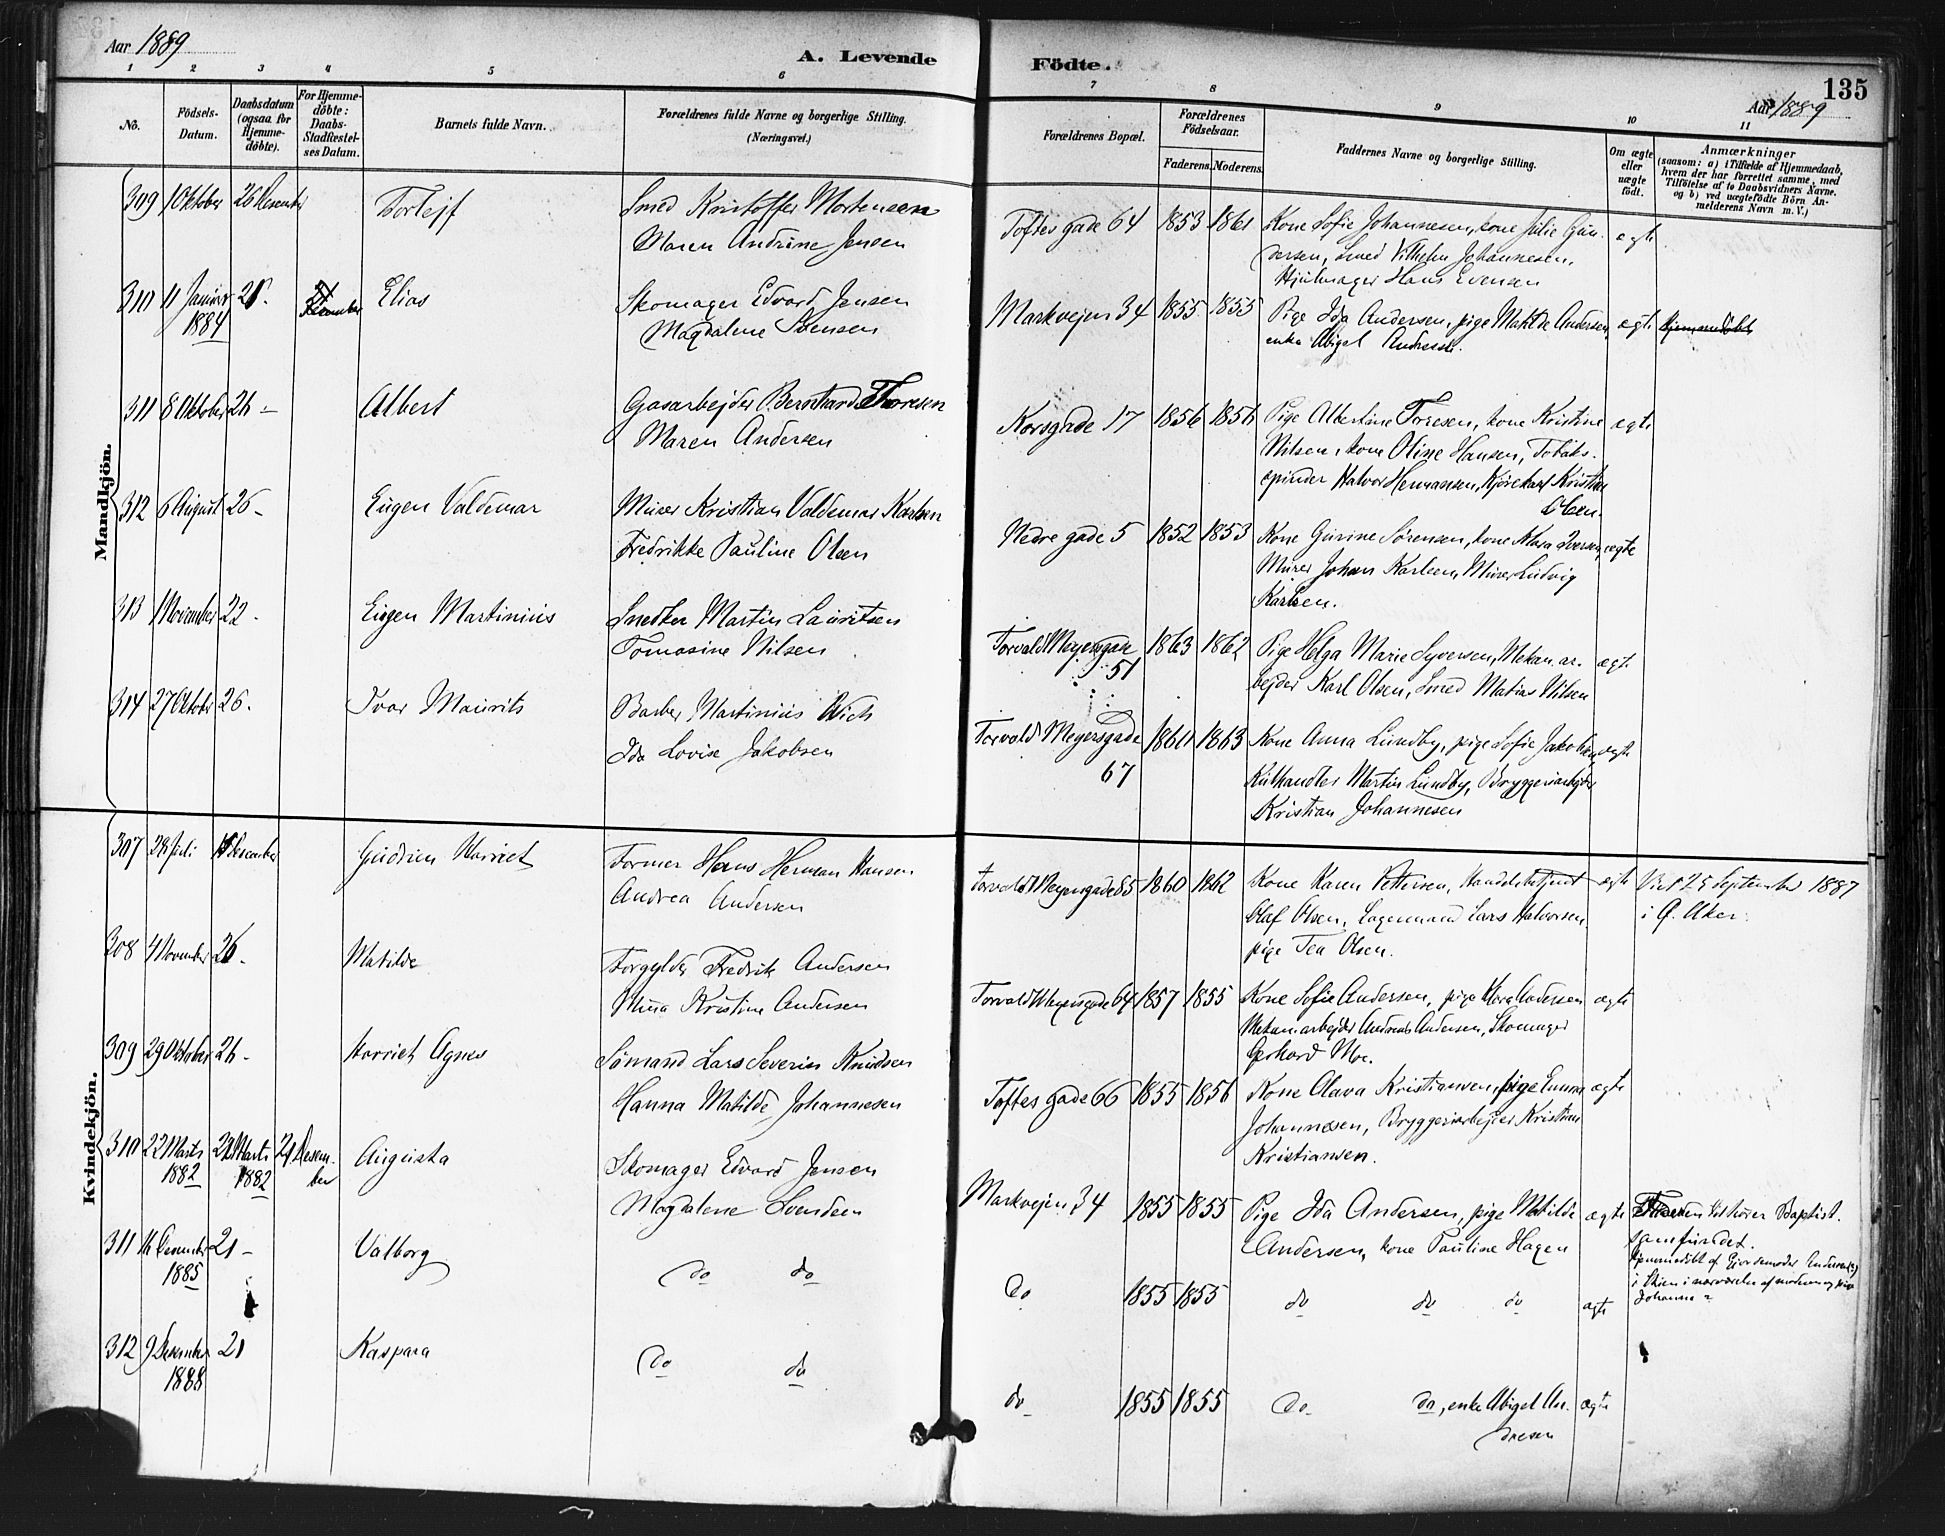 Aar 1889
A. Levende
Födte.
135
Aar 1889
1 2 3 4 5 6 7 8 9 10 11
No.
Födsels-
Datum.
Daabsdatum
(ogsaa for
Hjemme-
döbte).
For Hjemme-
döbte:
Daabs-
Stadfæstel-
ses Datum.
Barnets fulde Navn.
Forældrenes fulde Navne og borgerlige Stilling.
(Næringsvei.)
Forældrenes Bopæl.
Forældrenes
Födselsaar.
Faderens. Moderens.
Faddernes Navne og borgerlige Stilling.
Om ægte
eller
uægte
født.
Anmærkninger
(saasom: a) i Tilfælde af Hjemmedaab,
hvem der har forrettet samme, med
Tilföielse af to Daabsvidners Navne,
og b) ved uægtefödte Börn An-
melderens Navn m. V.)
Mandkjön.
309 1 Oktober 26 Desember Torlejf
Smed Kristoffer Mortensen
Maren Andrine Jensen
Toftes gade 64 1853 1861
Kone Sofie Johannesen, kone Julie Gun-
dersen, Smed Vilhelm Johannesen,
Hjulmager Hans Evensen
ægte
310 11 Januar
1884
21. Desember Elias
Skomager Edvard Jensen
Magdalene Svensen
Markvejen 34 1855 1855
Pige Ida Andersen, pige Matilde Andersen,
enke Abigel Andresen.
ægte Hjemmedöbt
311 8 Oktober 26 - Albert
Gasarbejder Bernhard Thoresen
Maren Andersen
Korsgade 17 1856 1856
Pige Albertine Toresen, kone Kristine
Nilsen, kone Oline Hansen, Tobaks-
spinder Halvor Hermansen, Kjörekarl Kristian
Olsen.
ægte
312 6 August 26 - Eugen Valdemar
Murer Kristian Valdemar Karlsen
Fredrikke Pauline Olsen
Nedre gade 5 1852 1853
Kone Gurine Sörensen, kone Klara Iversen,
Murer Johan Karlsen, Murer Ludvig
Karlsen.
ægte
313 1 November 22 - Eugen Martinius
Snedker Martin Lauritsen
Tomasine Nilsen
Torvald Meyersgade
51
1863 1862
Pige Helga Marie Syversen, Mekan. ar-
bejder Karl Olsen, Smed Matias Nilsen
ægte
314 27 Oktober 26. Ivar Maurits
Barber Martinius Wich
Ida Lovise Jakobsen
Torvald Meyersgade
67
1861 1863
Kone Anna Lundby, pige Sofie Jakobsen,
Kulhandler Martin Lundby, Bryggeriarbejder
Kristian Johannesen
ægte
Kvindekjön.
307 28 Juli Desember Gudrun Harriet
Former Hans Herman Hansen
Andrea Andersen
Torvald Meyersgade 85 1860 1862
Kone Karen Pettersen, Handelsbetjent
Olaf Olsen, Lagermand Lars Halvorsen,
pige Tea Olsen.
ægte
Viet 25 September 1887
i G. Aker.
308 4 November 26 - Matilde
Forgylder Fredrik Andersen
Mina Kristine Andersen
Torvald Meyersgade 64 1857 1855
Kone Sofie Andersen, pige Klara Andersen
Mekan. arbejder Andreas Andersen, Skomager
Gerhard Moe.
ægte
309 29 Oktober 26 - Harriet Agnes
Sömand Lars Severin Knudsen
Hanna Matilde Johannesen
Toftes gade 66 1855 1856
Kone Olava Kristiansen, pige Emma
Johannesen, Bryggeriarbejder Kristian
Kristiansen.
ægte
310 22 Marts
1882
Marts
1882
21 Desem-
ber
Augusta
Skomager Edvard Jensen
Magdalene Svendsen
Markvejen 34 1855 1855
Pige Ida Andersen, pige Matilde
Andersen, kone Pauline Hagen
ægte
Faderen tilhører Baptist-
samfundet.
Hjemmedöbt af Gjordemoder Andersen (?)
i Skien i nærværelse af moderen og pige
Johanne -
311 16 Desember
1885
21 - Valborg
do do
do 1855 1855
do do do
ægte
312 9 Desember
1888
21 Kaspara
do do
do 1855 1855
do do, enke Abigel An-
dresen
ægte